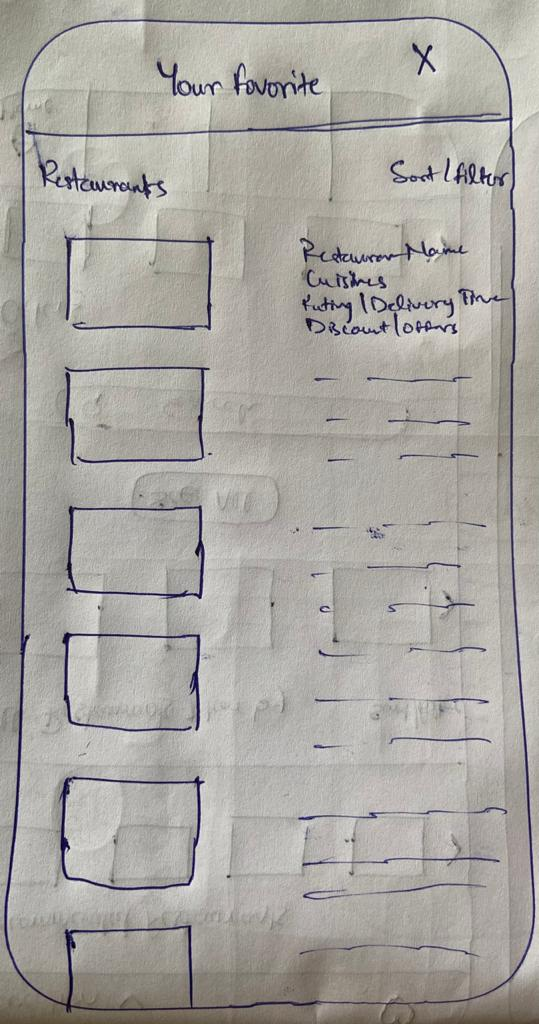 Your favorite X
Restaurants Sort/filter
Restauran Name
Cuisines
Rating/Delivery Time
Discount/offers